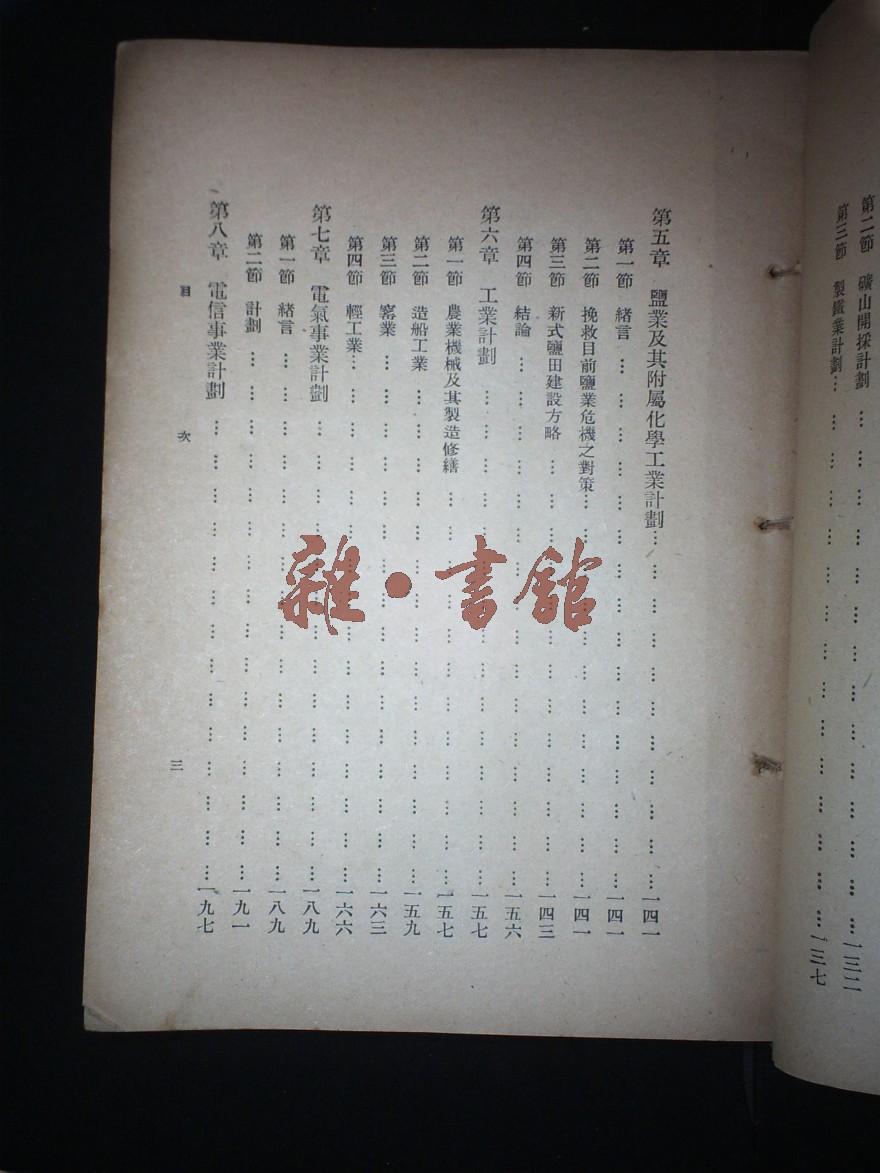 第二節 礦山開採計劃 … … … … … … … … … … … … …一三二
第三節 製鐵業計劃… … … … … … … … … … … … …一三七
第五章 鹽業及其附屬化學工業計劃… … … … … … … … … …一四一
第一節 緒言 … … … … … … … … … … … … … … …一四一
第二節 挽救目前鹽業危機之對策… … … … … … … … … … …一四一
第三節 新式鹽田建設方略 … … … … … … … … … … … …一四三
第四節 結論 … … … … … … … … … … … … … … …一五六
第六章 工業計劃 … … … … … … … … … … … … … …一五七
第一節 農業機械及其製造修繕 … … … … … … … … … … …一五七
第二節 造船工業 … … … … … … … … … … … … … …一五九
第三節 窰業 … … … … … … … … … … … … … … …一六三
第四節 輕工業… … … … … … … … … … … … … … …一六六
第七章 電氣事業計劃 … … … … … … … … … … … … …一八九
第一節 緒言 … … … … … … … … … … … … … … …一八九
第二節 計劃 … … … … … … … … … … … … … … …一九一
第八章 電信事業計劃 … … … … … … … … … … … … …一九七
目 次
三
雜·書館